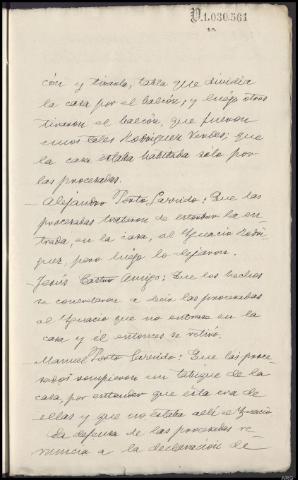 D.1.030.561
ción y tirando, tabla que dividía
la casa por el balcón, y luego otros
tiraron el balcón, que fueron
unos tales Rodríguez Verdes; que
la casa estaba habitada sólo por
las procesadas.
— Alejandro Porto Garrido: Que las
procesadas trataron de estorbar la en-
trada, en la casa, al Ignacio Rodrí-
guez, pero luego lo dejaron.
— Jesús Castro Amigo: Que los hechos
se concretaron a decir las procesadas
al Ignacio que no entrase en la
casa y él entonces se retiró.
Manuel Porto Garrido: Que las proce-
sadas rompieron un tabique de la
casa, por entender que ésta era de
ellas y que no estaba allí el Ignacio
La defensa de las procesadas re-
nuncia a la declaración de